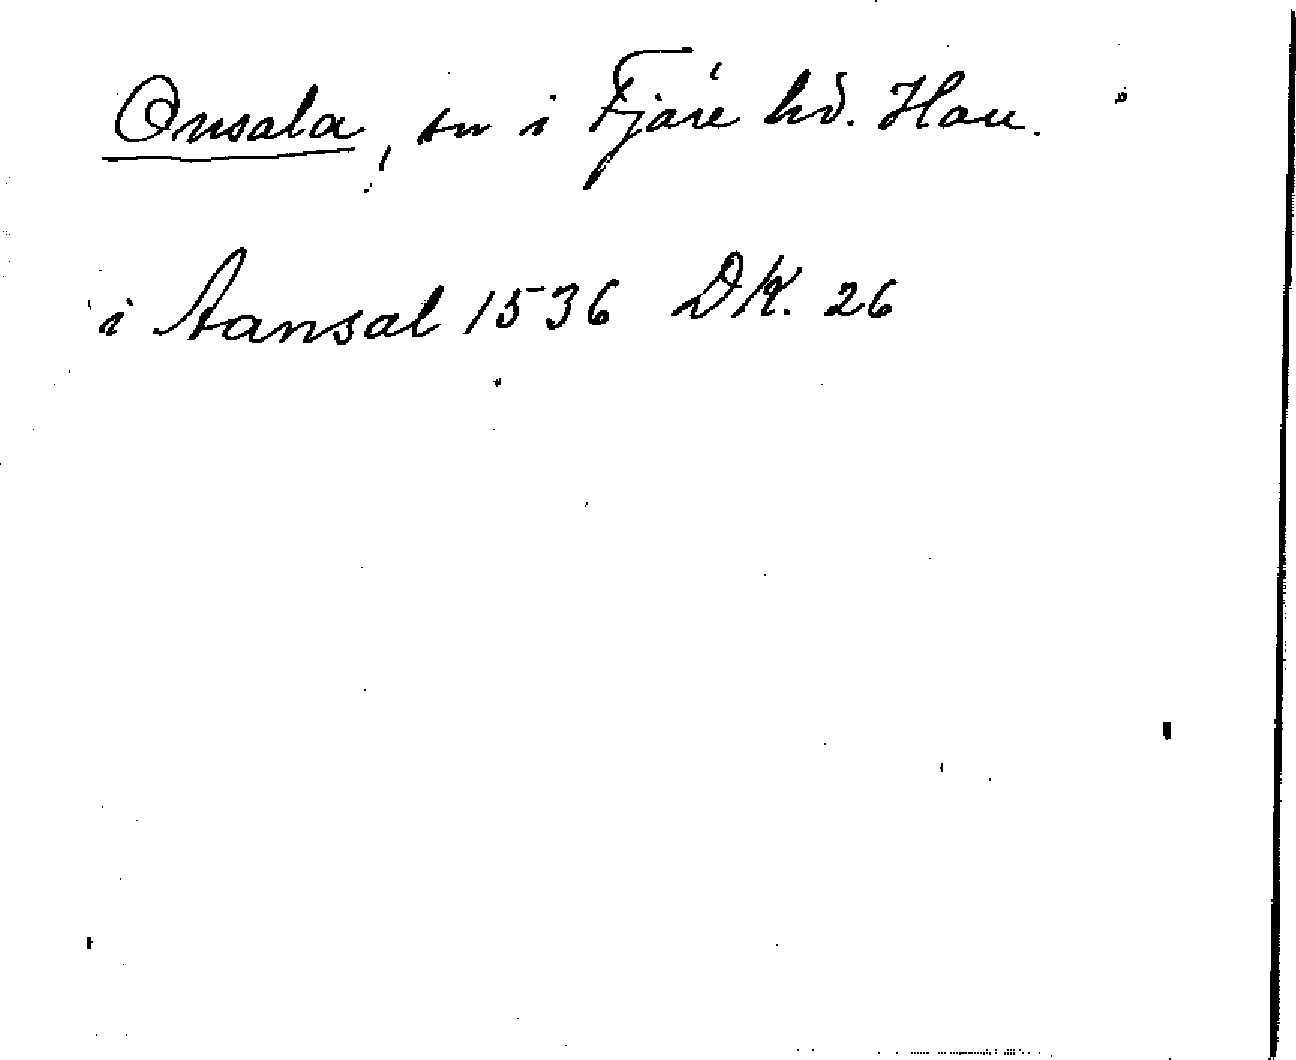 Onsala, sn i Fjäre hd. Hall.
i Aansal 1536 DK. 26